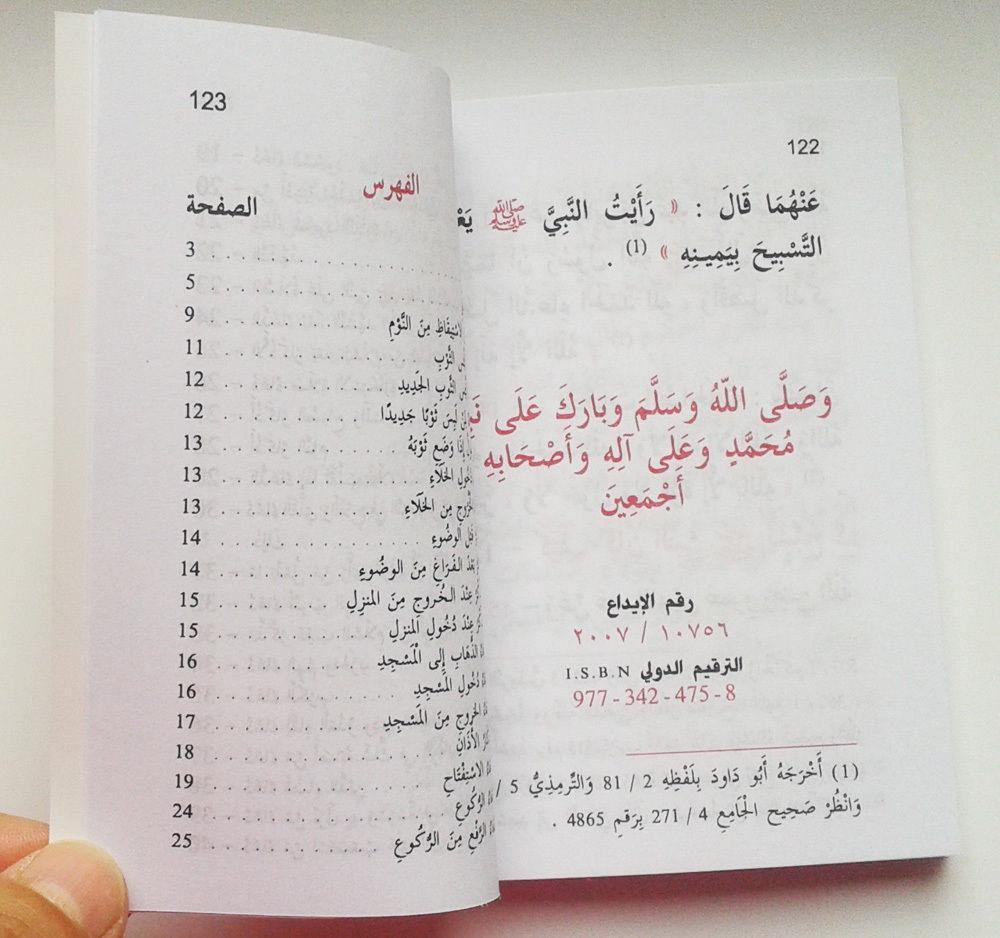 122
عَنْهُمَا قَالَ : « رَأَيْتُ النَّبِيَّ ﷺ
التَّسْبِيحَ بِيَمِينِهِ » (1) .
وَصَلَّى اللّهُ وَسَلَّمَ وَبَارَكَ عَلَى
مُحَمَّدٍ وَعَلَى آلِهِ وَأَصْحَابِهِ
أَجْمَعِينَ
رقم الإيداع
٢٠٠٧ / ١٠٧٥٦
الترقيم الدولي I.S.B.N
977-342-475-8
(1) أَخْرَجَهُ أَبُو دَاودَ بِلَفْظِهِ 2 / 81 وَالتِّرمِذِيُّ 5 /
وَانْظُرْ صَحِيح الْجَامِعِ 4 / 271 بِرَقمِ 4865 .
123
الفهرس
الصفحة
3
5
مِنَ النَّوْمِ 9
الثَّوْبِ 11
الثَّوْبِ الجَدِيدِ 12
لَبِسَ ثَوْبًا جَدِيدًا 12
إِذَا وَضَعَ ثَوْبَهُ 13
الخَلَاءِ 13
مِنَ الخَلَاءِ 13
الوضُوءِ 14
الفَرَاغِ مِنَ الوضُوءِ 14
عِنْدَ الخُروجِ مِنَ المنزِلِ 15
عِنْدَ دُخُولِ المنزلِ 15
الذَّهَابِ إِلَى الْمَسْجِدِ 16
دُخُولِ المَسْجِدِ 16
الخروجِ مِنَ المَسْجِدِ 17
الأَذَانِ 18
الاسْتِفْتَاحِ 19
الرُّكُوعِ 24
الرَّفْعِ مِنَ الرُّكُوعِ 25